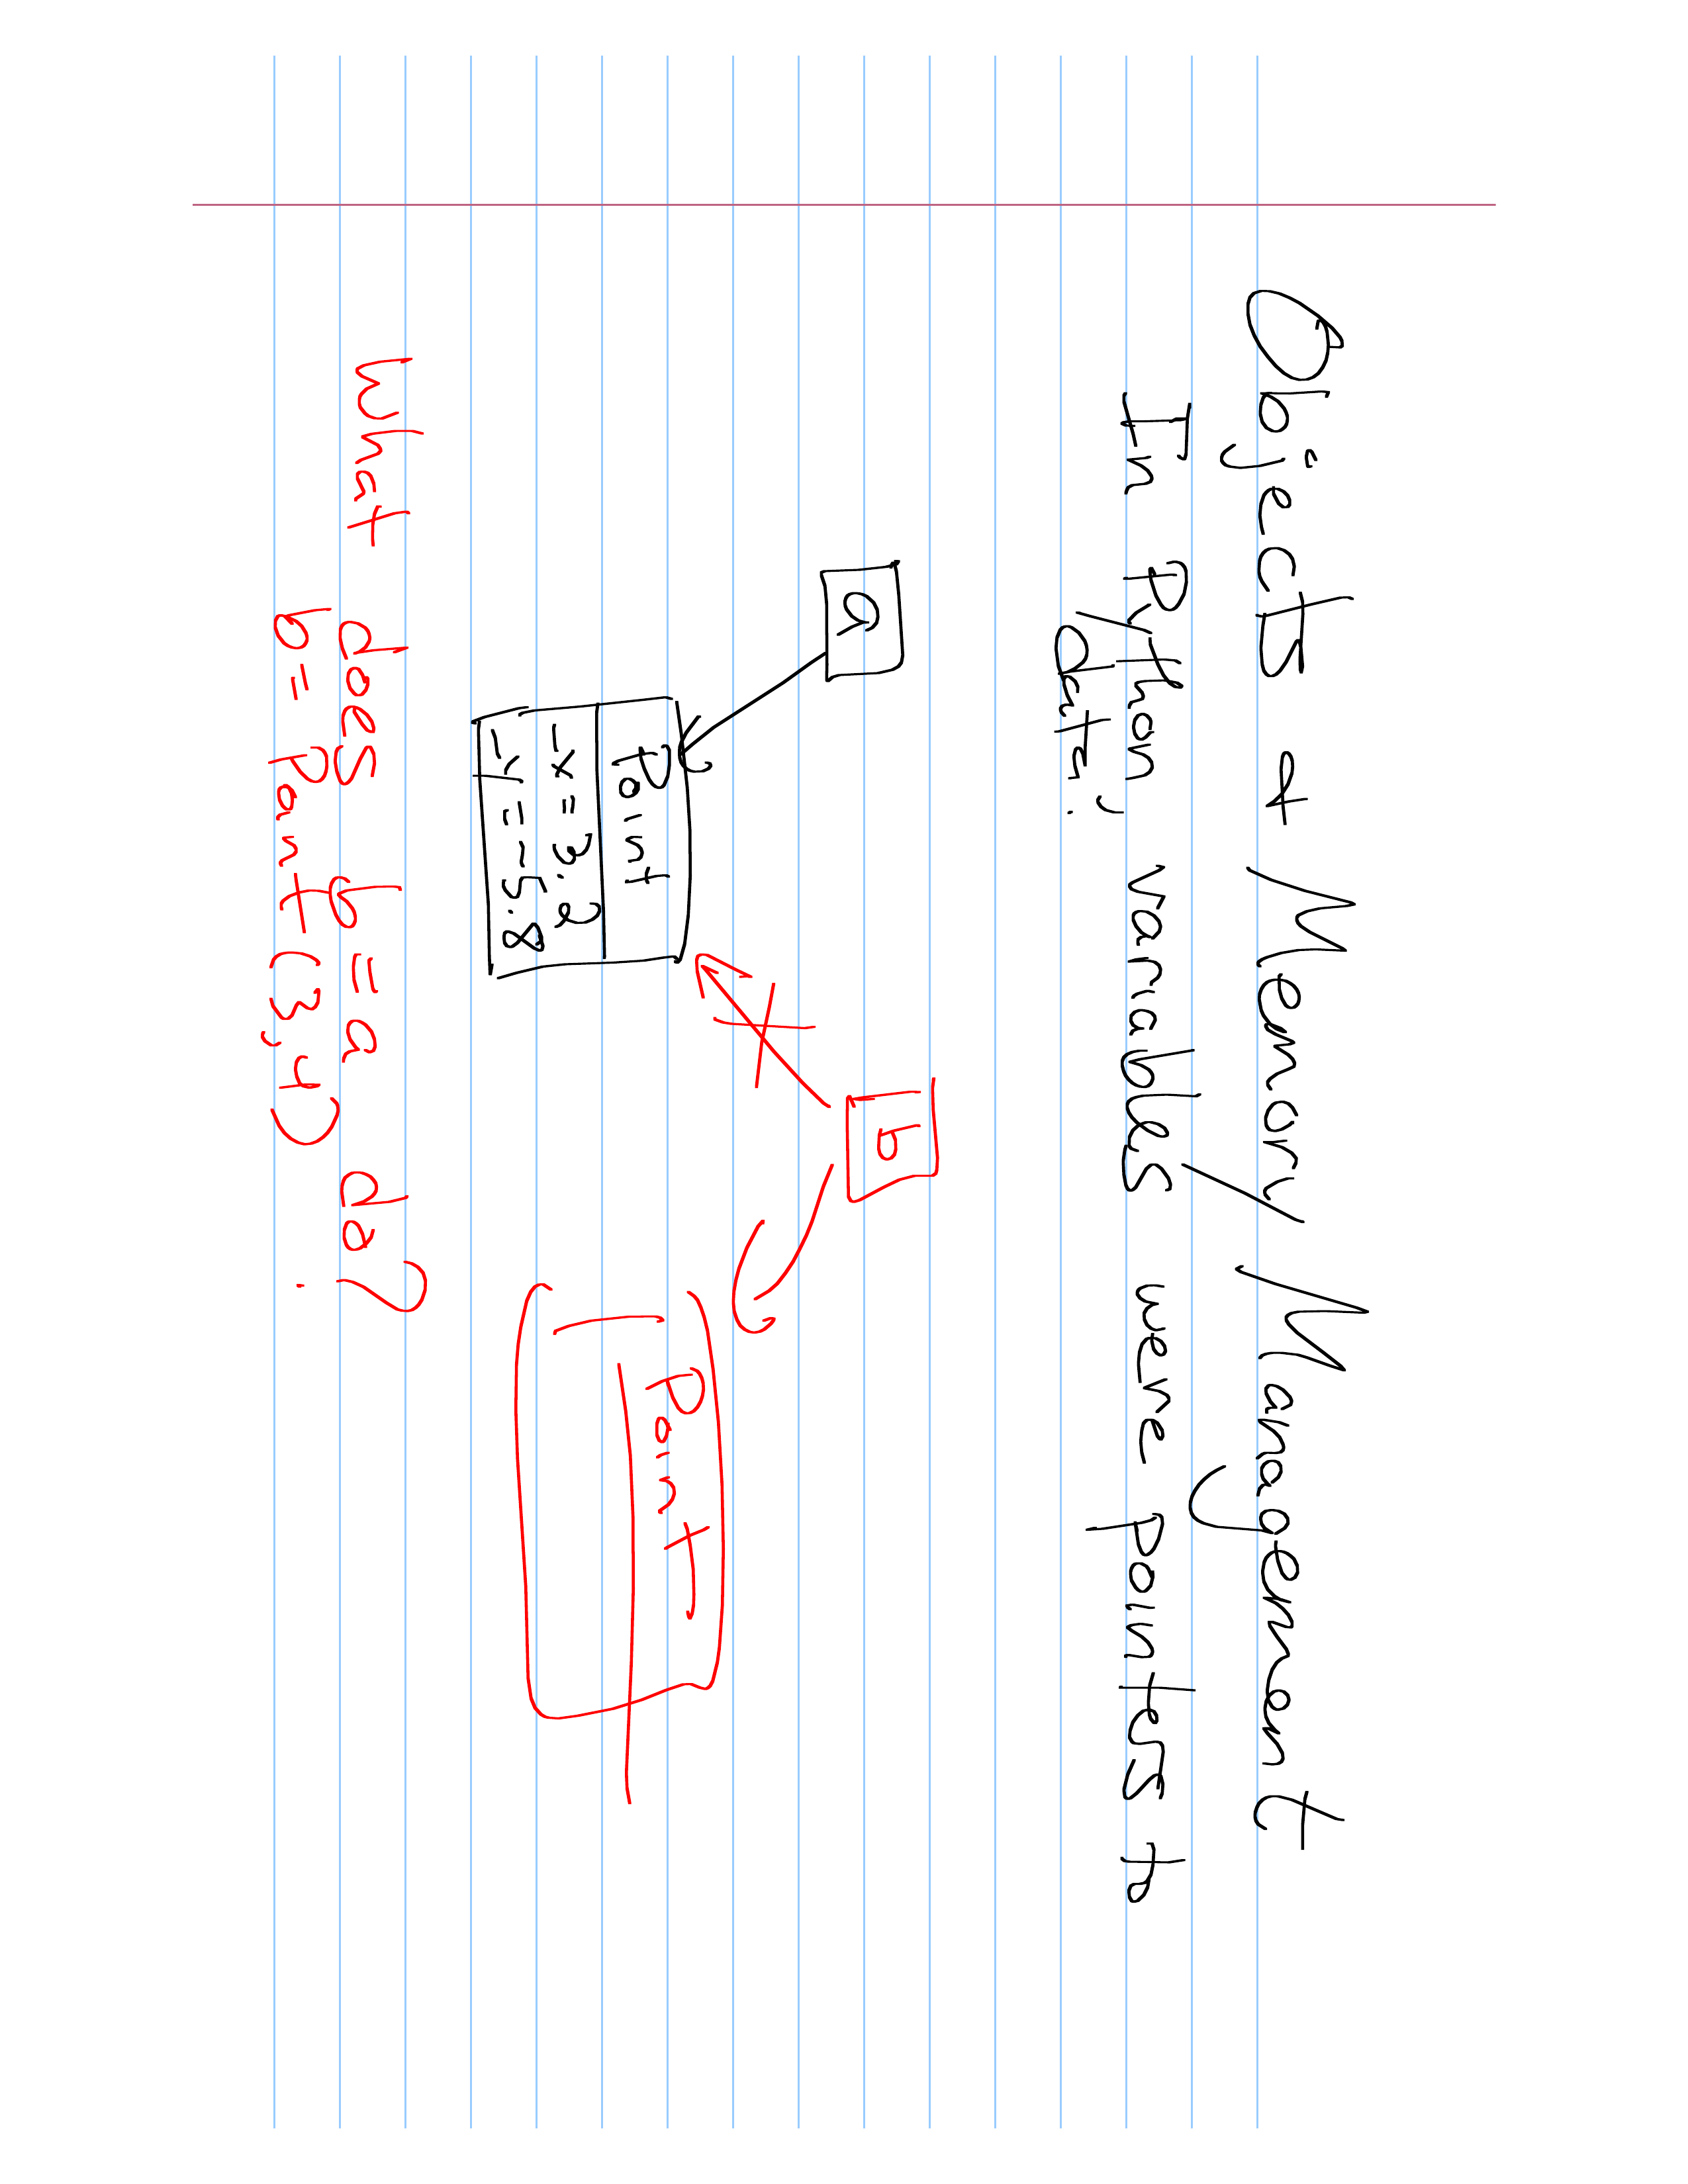 Objects & Memory Management
In Python, variables were pointers to
data.
a
b
Point
-x = 3.2
-y = -5.8
Point
What does b = a do?
b = Point (3,4)